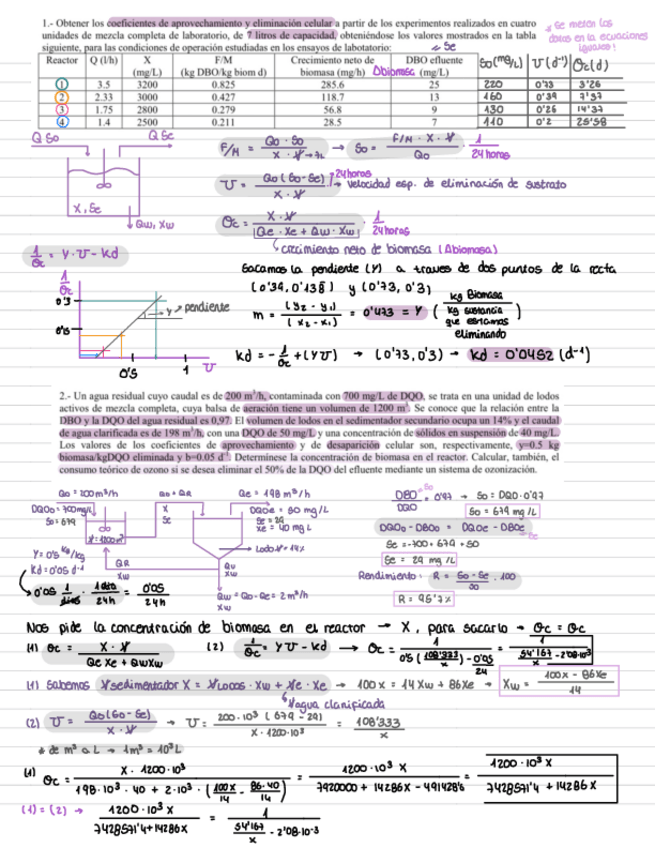 1.- Obtener los coeficientes de aprovechamiento y eliminación celular a partir de los experimentos realizados en cuatro
unidades de mezcla completa de laboratorio, de 7 litros de capacidad, obteniéndose los valores mostrados en la tabla
siguiente, para las condiciones de operación estudiadas en los ensayos de labotatorio:
se meten los
datos en la ecuaciones
iguales!
← Se
Reactor Q (l/h) X (mg/L) F/M (kg DBO/kg biom d) Crecimiento neto de biomasa (mg/h) Δbiomasa DBO efluente (mg/L) So(mg/L) U(d⁻¹) Θc(d)
1 3.5 3200 0.825 285.6 25 220 0'73 3'26
2 2.33 3000 0.427 118.7 13 160 0'39 7'37
3 1.75 2800 0.279 56.8 9 130 0'26 14'37
4 1.4 2500 0.211 28.5 7 110 0'2 25'58
Q So
Q Se
do
X, Se
Qw, Xw
F/M = Qo · So / X · V → 7L → So = F/M · X · V / Qo · 1 / 24 horas
U = Qo (So - Se) / X · V 24 horas → velocidad esp. de eliminación de sustrato
Θc = X · V / |Qe · Xe + Qw · Xw| · 1 / 24 horas
crecimiento neto de biomasa (Δbiomasa)
1/Θc = Y · U - kd
Sacamos la pendiente (Y) a traves de dos puntos de la recta
(0'39, 0'136) y (0'73, 0'3)
m = (y₂ - y₁) / (x₂ - x₁) = 0'473 = Y (kg Biomasa / kg sustancia que estamos eliminando)
1/Θc
0'3
0'15
Y → pendiente
0'5
1
U
kd = - 1/Θc + (YU) → (0'73, 0'3) → kd = 0'0452 (d⁻¹)
2.- Un agua residual cuyo caudal es de 200 m³/h, contaminada con 700 mg/L de DQO, se trata en una unidad de lodos
activos de mezcla completa, cuya balsa de aeración tiene un volumen de 1200 m³. Se conoce que la relación entre la
DBO y la DQO del agua residual es 0,97. El volumen de lodos en el sedimentador secundario ocupa un 14% y el caudal
de agua clarificada es de 198 m³/h, con una DQO de 50 mg/L y una concentración de sólidos en suspensión de 40 mg/L.
Los valores de los coeficientes de aprovechamiento y de desaparición celular son, respectivamente, y=0.5 kg
biomasa/kgDQO eliminada y b=0.05 d⁻¹. Determínese la concentración de biomasa en el reactor. Calcular, también, el
consumo teórico de ozono si se desea eliminar el 50% de la DQO del efluente mediante un sistema de ozonización.
Qo = 200m³/h
Qo + QR
Qe = 198 m³/h
DQOo = 700mg/L
So = 679
do
V = 1200m³
X
Se
DQOe = 50 mg/L
Se = 29
Xe = 40 mg L
Lodo V = 14%
Y = 0'5 kg/kg
Kd = 0'05 d⁻¹
QR
Xw
Qw
Xw
Qw = Qo - Qe = 2 m³/h
Xw
0'05 1/dias · 1 dia/24h = 0'05/24h
DBO/DQO = 0'97 → So = DQO · 0'97
So = 679 mg/L
DQOo - DBOo = DQOe - DBOe
Se = -700 + 679 + 50
Se = 29 mg/L
Rendimiento: R = So - Se / So · 100
R = 95'7%
Nos pide la concentración de biomasa en el reactor → X, para sacarlo → Θc = Θc
(1) Θc = X · V / Qe Xe + Qw Xw (2) 1/Θc = YU - kd → Θc = 1 / 0'5 (108'333/x) - 0'05/24 = 1 / 54'167/x - 2'08·10⁻³
(1) Sabemos V sedimentador X = V Lodos · Xw + Ve · Xe → 100x = 14Xw + 86Xe → Xw = 100x - 86Xe / 14
Vagua clarificada
(2) U = Qo(So - Se) / X · V → U = 200·10³ (679 - 29) / X · 1200·10³ = 108'333 / x
* de m³ a L → 1m³ = 10³ L
(1) Θc = X · 1200·10³ / 198·10³ · 40 + 2·10³ · (100x/14 - 86·40/14) = 1200·10³ X / 7920000 + 14286X - 491428'6 = 1200·10³ X / 7428571'4 + 14286X
(1) = (2) → 1200·10³ X / 7428571'4 + 14286X = 1 / 54'167/x - 2'08·10⁻³